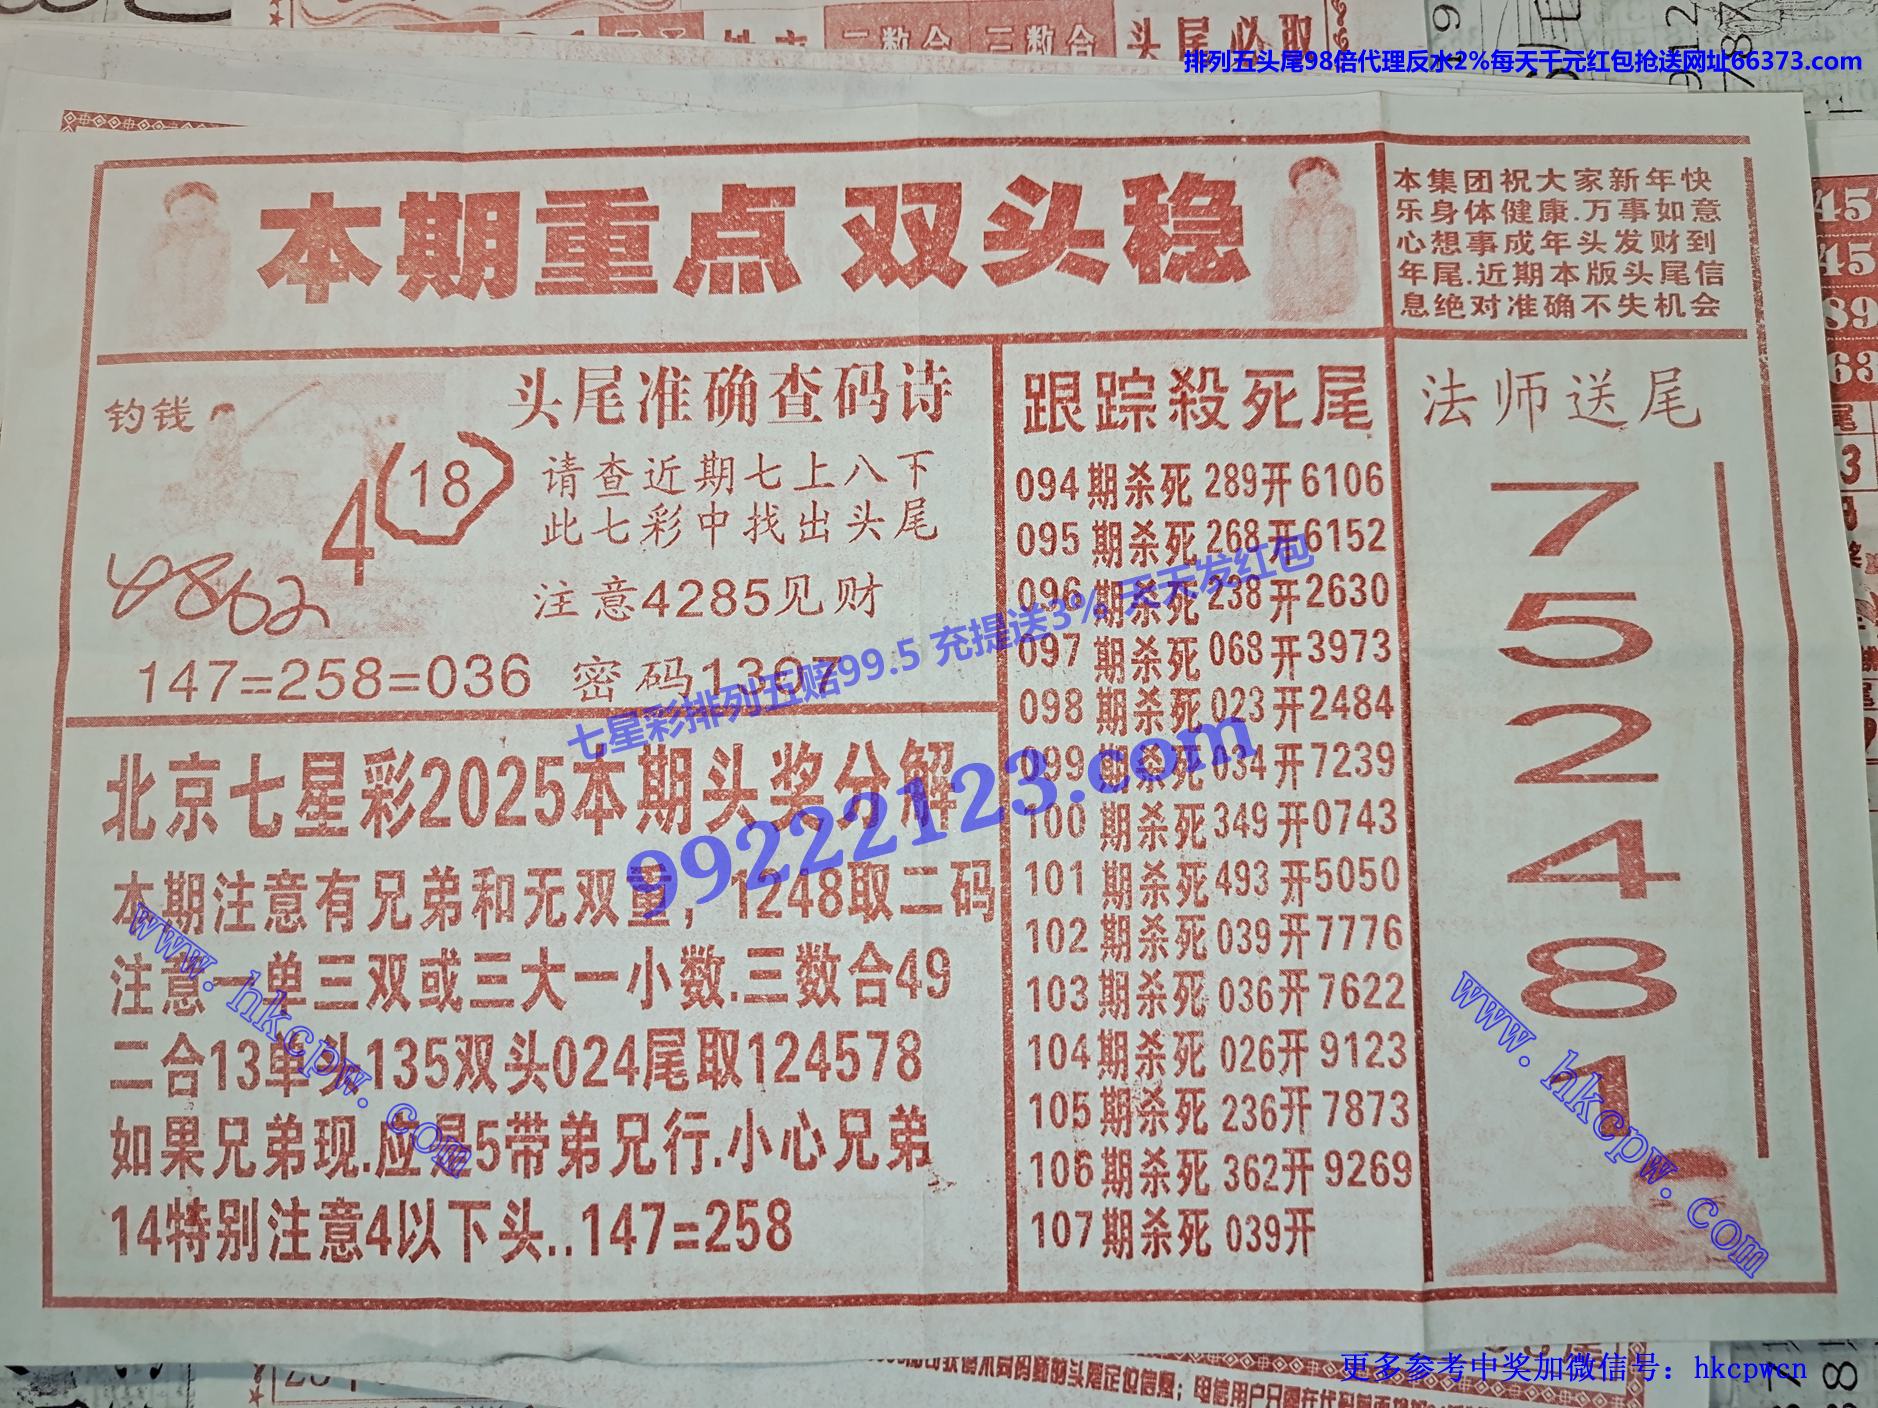 排列五头尾98倍代理反水2%每天千元红包抢送网址66373.com
头尾必取
本期重点 双头稳
本集团祝大家新年快
乐身体健康.万事如意
心想事成年头发财到
年尾.近期本版头尾信
息绝对准确不失机会
钓钱
4
18
8862
头尾准确查码诗
请查近期七上八下
此七彩中找出头尾
注意4285见财
147=258=036 密码1307
北京七星彩2025本期头奖分解
本期注意有兄弟和无双重，1248取二码
注意一单三双或三大一小数.三数合49
二合13单头135双头024尾取124578
如果兄弟现.应是5带弟兄行.小心兄弟
14特别注意4以下头..147=258
跟踪殺死尾
094期杀死289开6106
095期杀死268开6152
096期杀死238开2630
097期杀死068开3973
098期杀死023开2484
099期杀死034开7239
100期杀死349开0743
101期杀死493开5050
102期杀死039开7776
103期杀死036开7622
104期杀死026开9123
105期杀死236开7873
106期杀死362开9269
107期杀死039开
法师送尾
7
5
2
4
8
1
七星彩排列五赔99.5 充提送3% 天天发红包
99222123.com
www.hkcpw.com
www.hkcpw.com
更多参考中奖加微信号：hkcpwcn